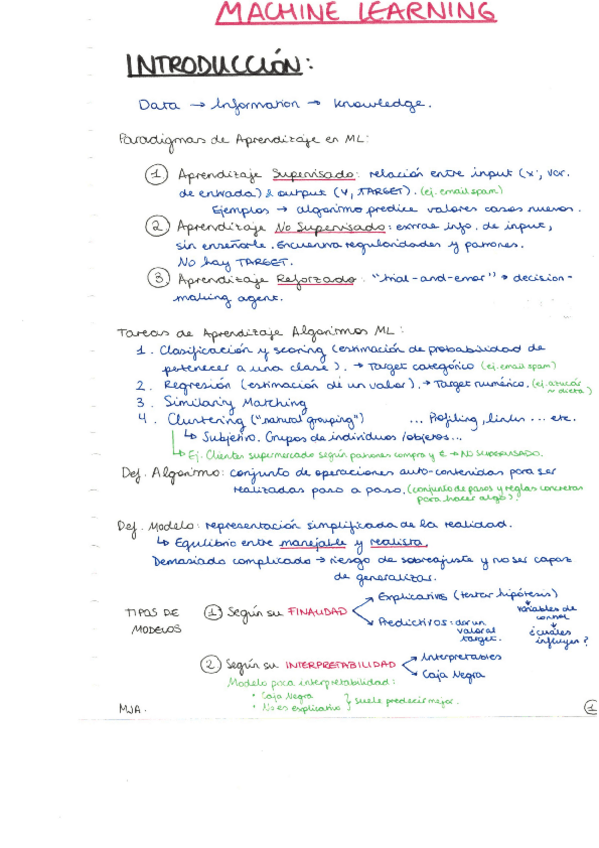 MACHINE LEARNING
INTRODUCCIÓN:
Data → Information → knowledge.
Paradigmas de Aprendizaje en ML:
1 Aprendizaje Supervisado: relación entre input (x, var.
de entrada) & output (Y, TARGET). (ej. email spam)
Ejemplos → algoritmo predice valores casos nuevos.
2 Aprendizaje No Supervisado: extrae info. de input,
sin enseñarle. Encuentra regularidades y patrones.
No hay TARGET.
3 Aprendizaje Reforzado: "trial-and-error" → decision-
making agent.
Tareas de Aprendizaje Algoritmos ML:
1. Clasificación y scoring (estimación de probabilidad de
pertenecer a una clase). → Target categórico (ej. email spam)
2. Regresión (estimación de un valor). → Target numérico. (ej. azúcar ~ dieta)
3. Similarity Matching
4. Clustering ("natural grouping") ... Profiling, links ... etc.
↳ Subjetivo. Grupos de individuos/objetos...
↳ Ej. Clientes supermercado según patrones compra y € → NO SUPERVISADO.
Def. Algoritmo: conjunto de operaciones auto-contenidas para ser
realizadas paso a paso. (conjunto de pasos y reglas concretas
para hacer algo).
Def. Modelo: representación simplificada de la realidad.
↳ Equilibrio entre manejable y realista.
Demasiado complicado → riesgo de sobreajuste y no ser capaz
de generalizar.
TIPOS DE MODELOS
1 Según su FINALIDAD
Explicativos (testar hipótesis)
variables de control
¿cuáles influyen?
Predictivos: dar un
valor al
target.
2 Según su INTERPRETABILIDAD
Interpretables
Caja Negra
Modelo poca interpretabilidad:
• Caja Negra
• No es explicativo
} suele predecir mejor.
MJA.
1